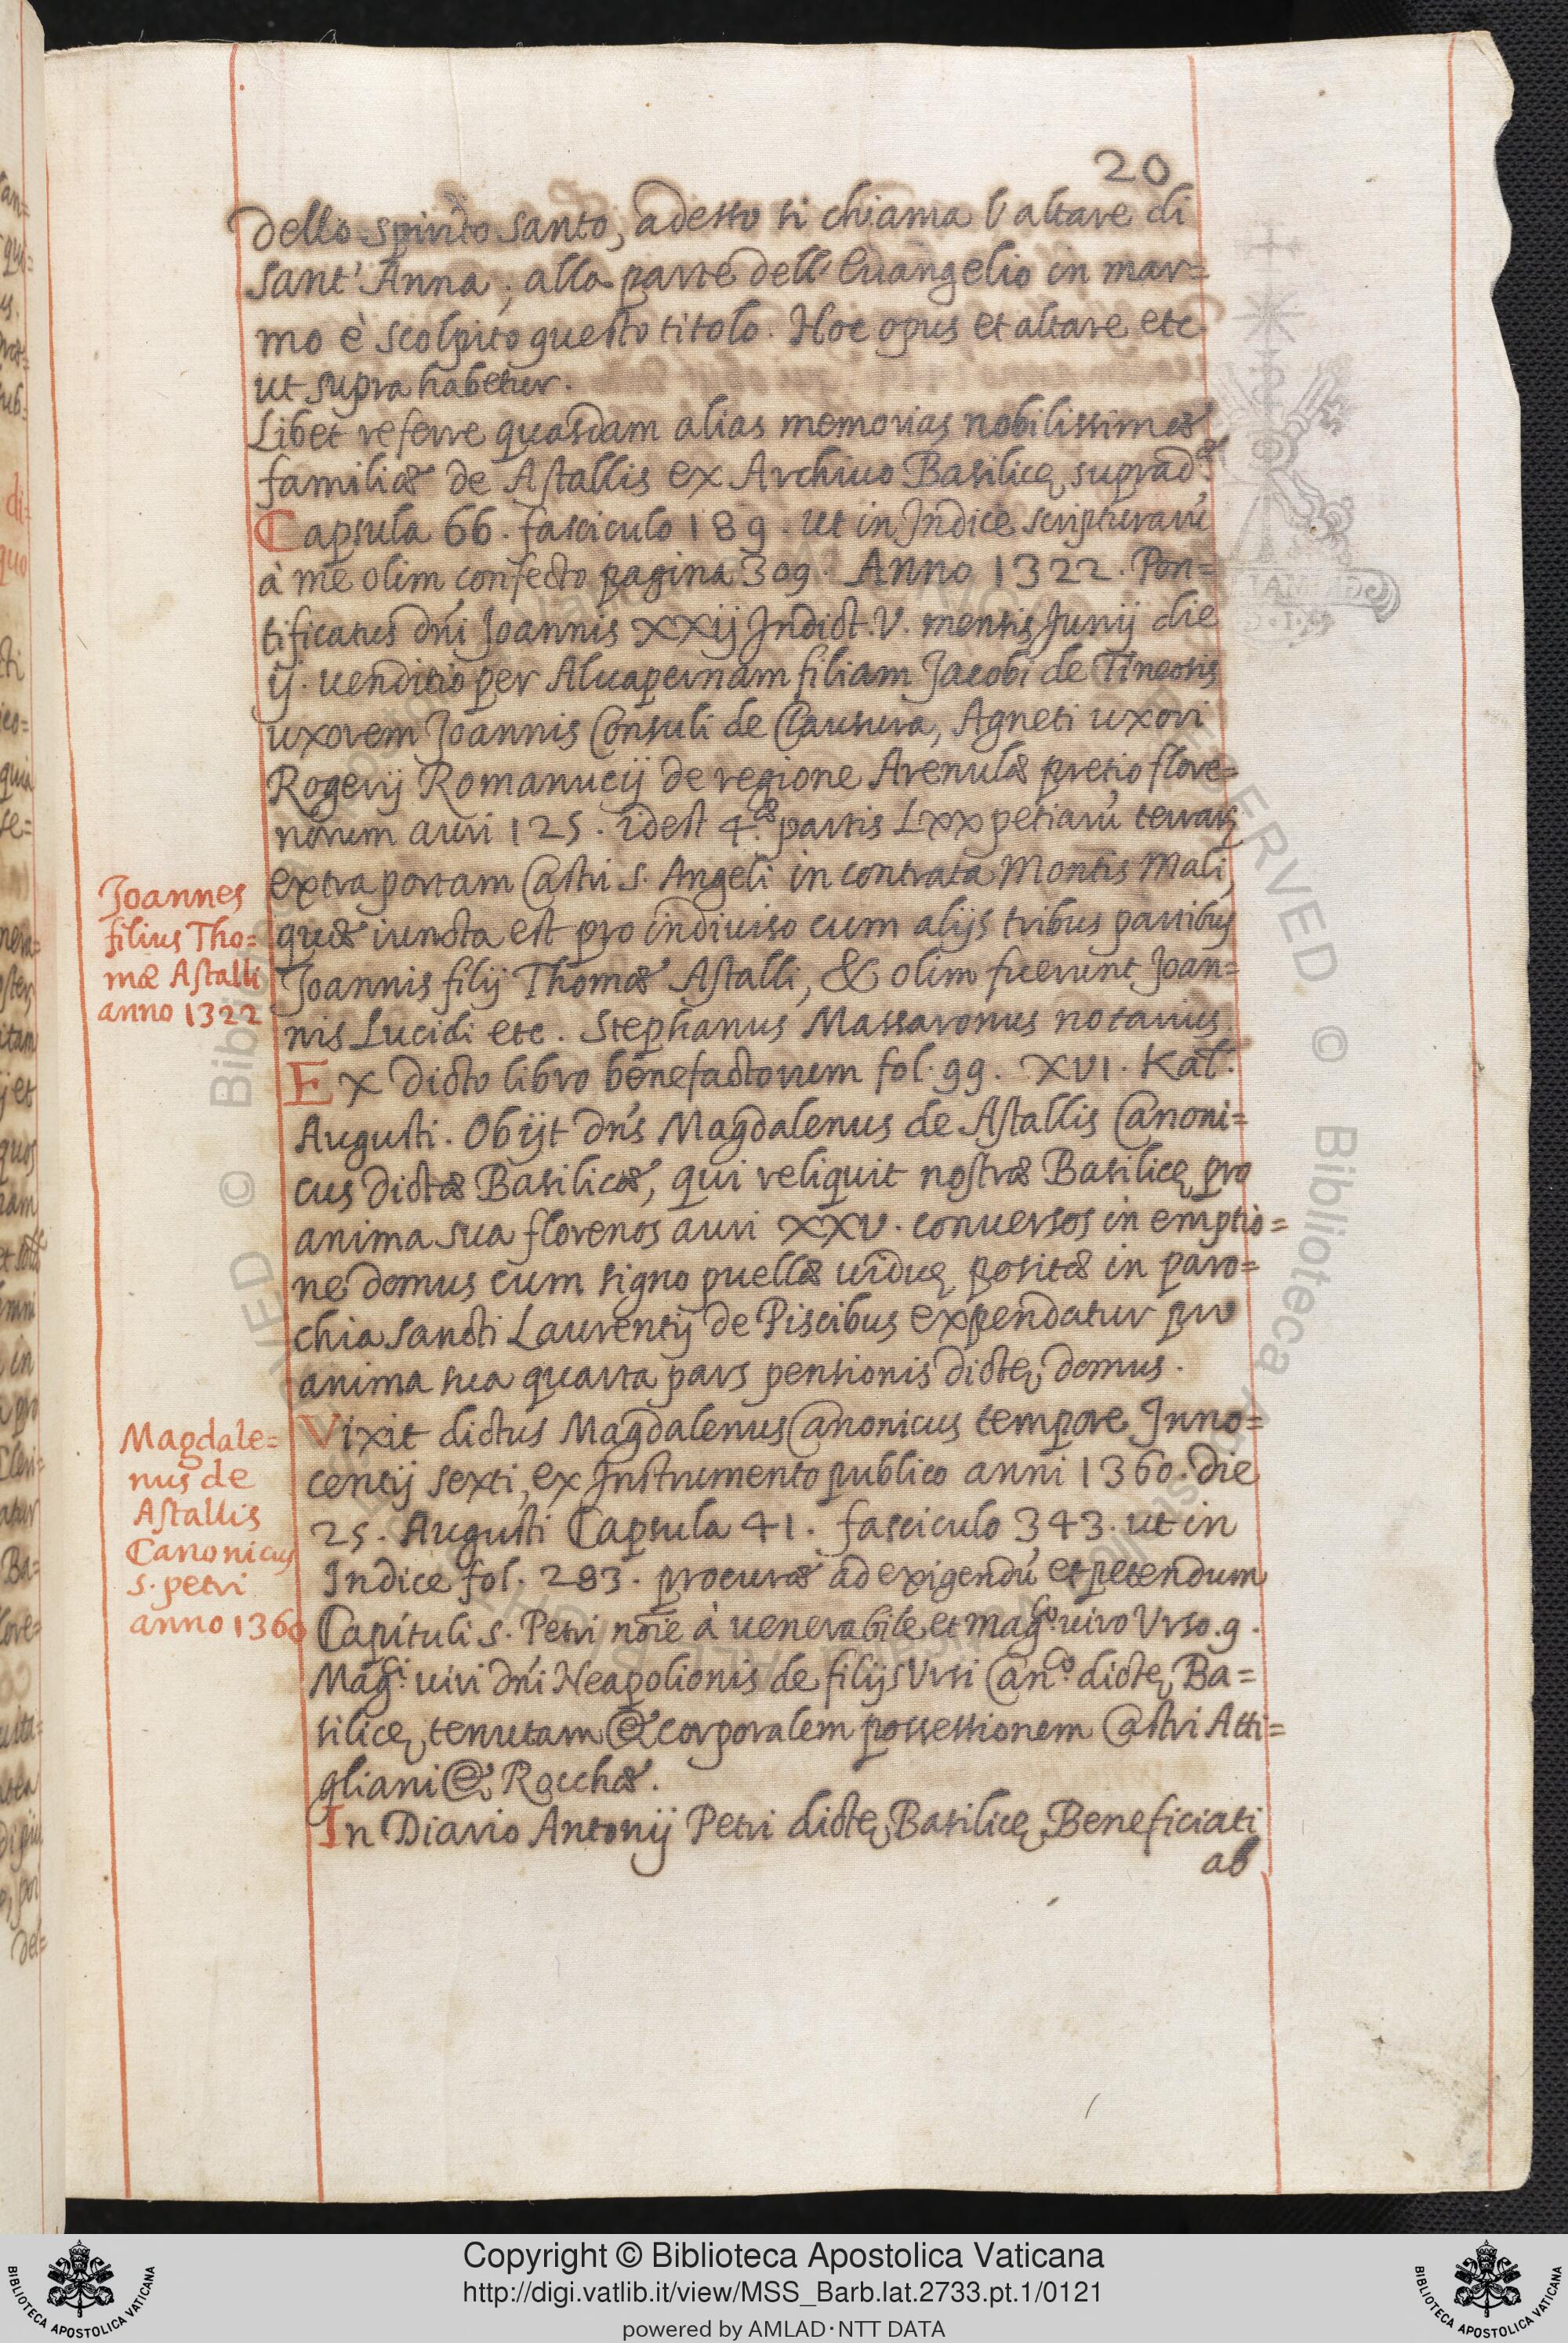 20
dello spirito santo, adesso si chiama l'altare di
sant' Anna, alla parte dell' Euangelio in mar=
mo è scolpito questo titolo. Hoc opus et altare etc
ut supra habetur.
Libet referre quasdam alias memorias nobilissimæ
familiæ de Astallis ex Archiuo Basilicę suprad.æ
Capsula 66. fasciculo 189. ut in Indice scripturarũ
à me olim confecto pagina 309. Anno 1322. Pon=
tificatus dñi Joannis XXij Indict. V. mensis Junij die
ij. uenditio per Aluapernam filiam Jacobi de Tineosis
uxorem Joannis Consuli de Clausura, Agneti uxori
Rogerij Romanucij de regione Arenulæ pretio flore=
norum auri 125. idest 4.æ partis Lxx petiarũ terrarũ
extra portam Castri s. Angeli in contrata Montis Mali,
quæ iuncta est pro indiuiso cum alijs tribus partibus
Joannis filij Thomæ Astalli, & olim fuerunt Joan=
nis Lucidi etc. Stephanus Massaronus notarius.
Joannes
filius Tho=
mæ Astalli
anno 1322
Ex dicto libro benefactorum fol. 99. XVI. Kal.
Augusti. Obijt dñs Magdalenus de Astallis Canoni=
cus dictæ Basilicæ, qui reliquit nostræ Basilicę pro
anima sua florenos auri XXV. conuersos in emptio=
ne domus cum signo puellæ uiduę positæ in paro=
chia sancti Laurentij de Piscibus expendatur pro
anima sua quarta pars pensionis dictę domus.
Vixit dictus Magdalenus Canonicus tempore Inno=
centij sexti, ex Instrumento publico anni 1360. die
25. Augusti Capsula 41. fasciculo 343. ut in
Indice fol. 283. procuræ ad exigendũ et petendum
Capituli s. Petri nõie à uenerabile et mag.co uiro Urso. q.
Mag.ci uiri dñi Neapolionis de filijs Ursi Can.co dictę Ba=
silicę, tenutam & corporalem possessionem Castri Atti=
gliani & Rocchæ.
Magdale=
nus de
Astallis
Canonicus
s. petri
anno 1360
In Diario Antonij Petri dictę Basilicę Beneficiati
ab
Copyright © Biblioteca Apostolica Vaticana
http://digi.vatlib.it/view/MSS_Barb.lat.2733.pt.1/0121
powered by AMLAD·NTT DATA
BIBLIOTECA APOSTOLICA VATICANA
BIBLIOTECA APOSTOLICA VATICANA